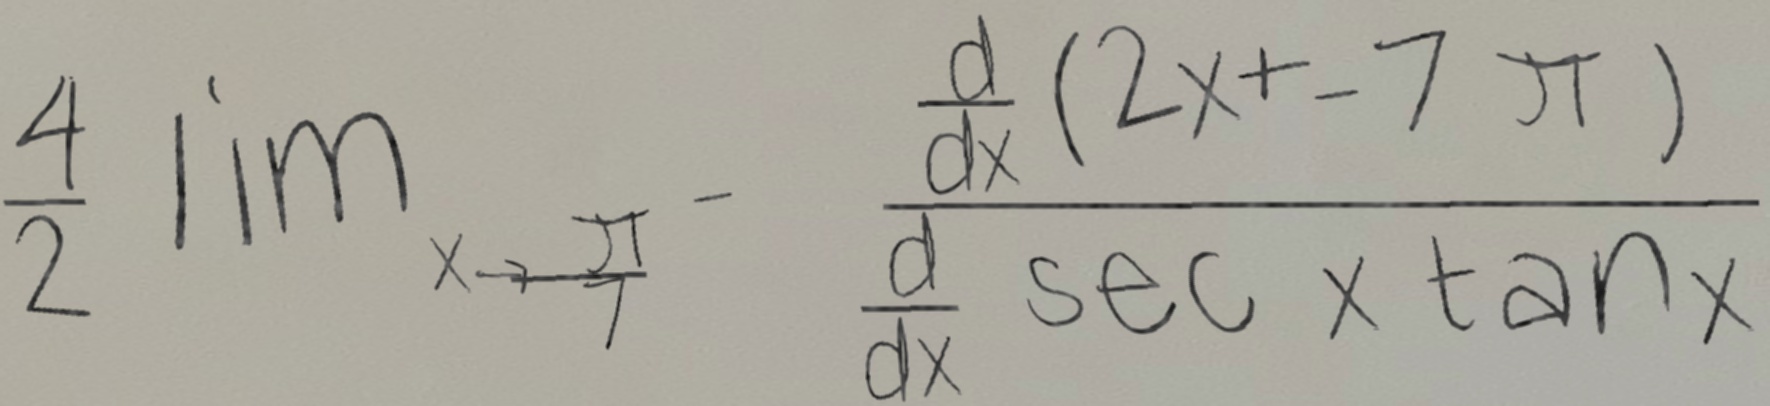 \frac{4}{2} \lim_{x \to \frac{\pi}{7}^{-}} \frac{\frac{d}{dx}(2x+-7\pi)}{\frac{d}{dx} \sec x \tan x}